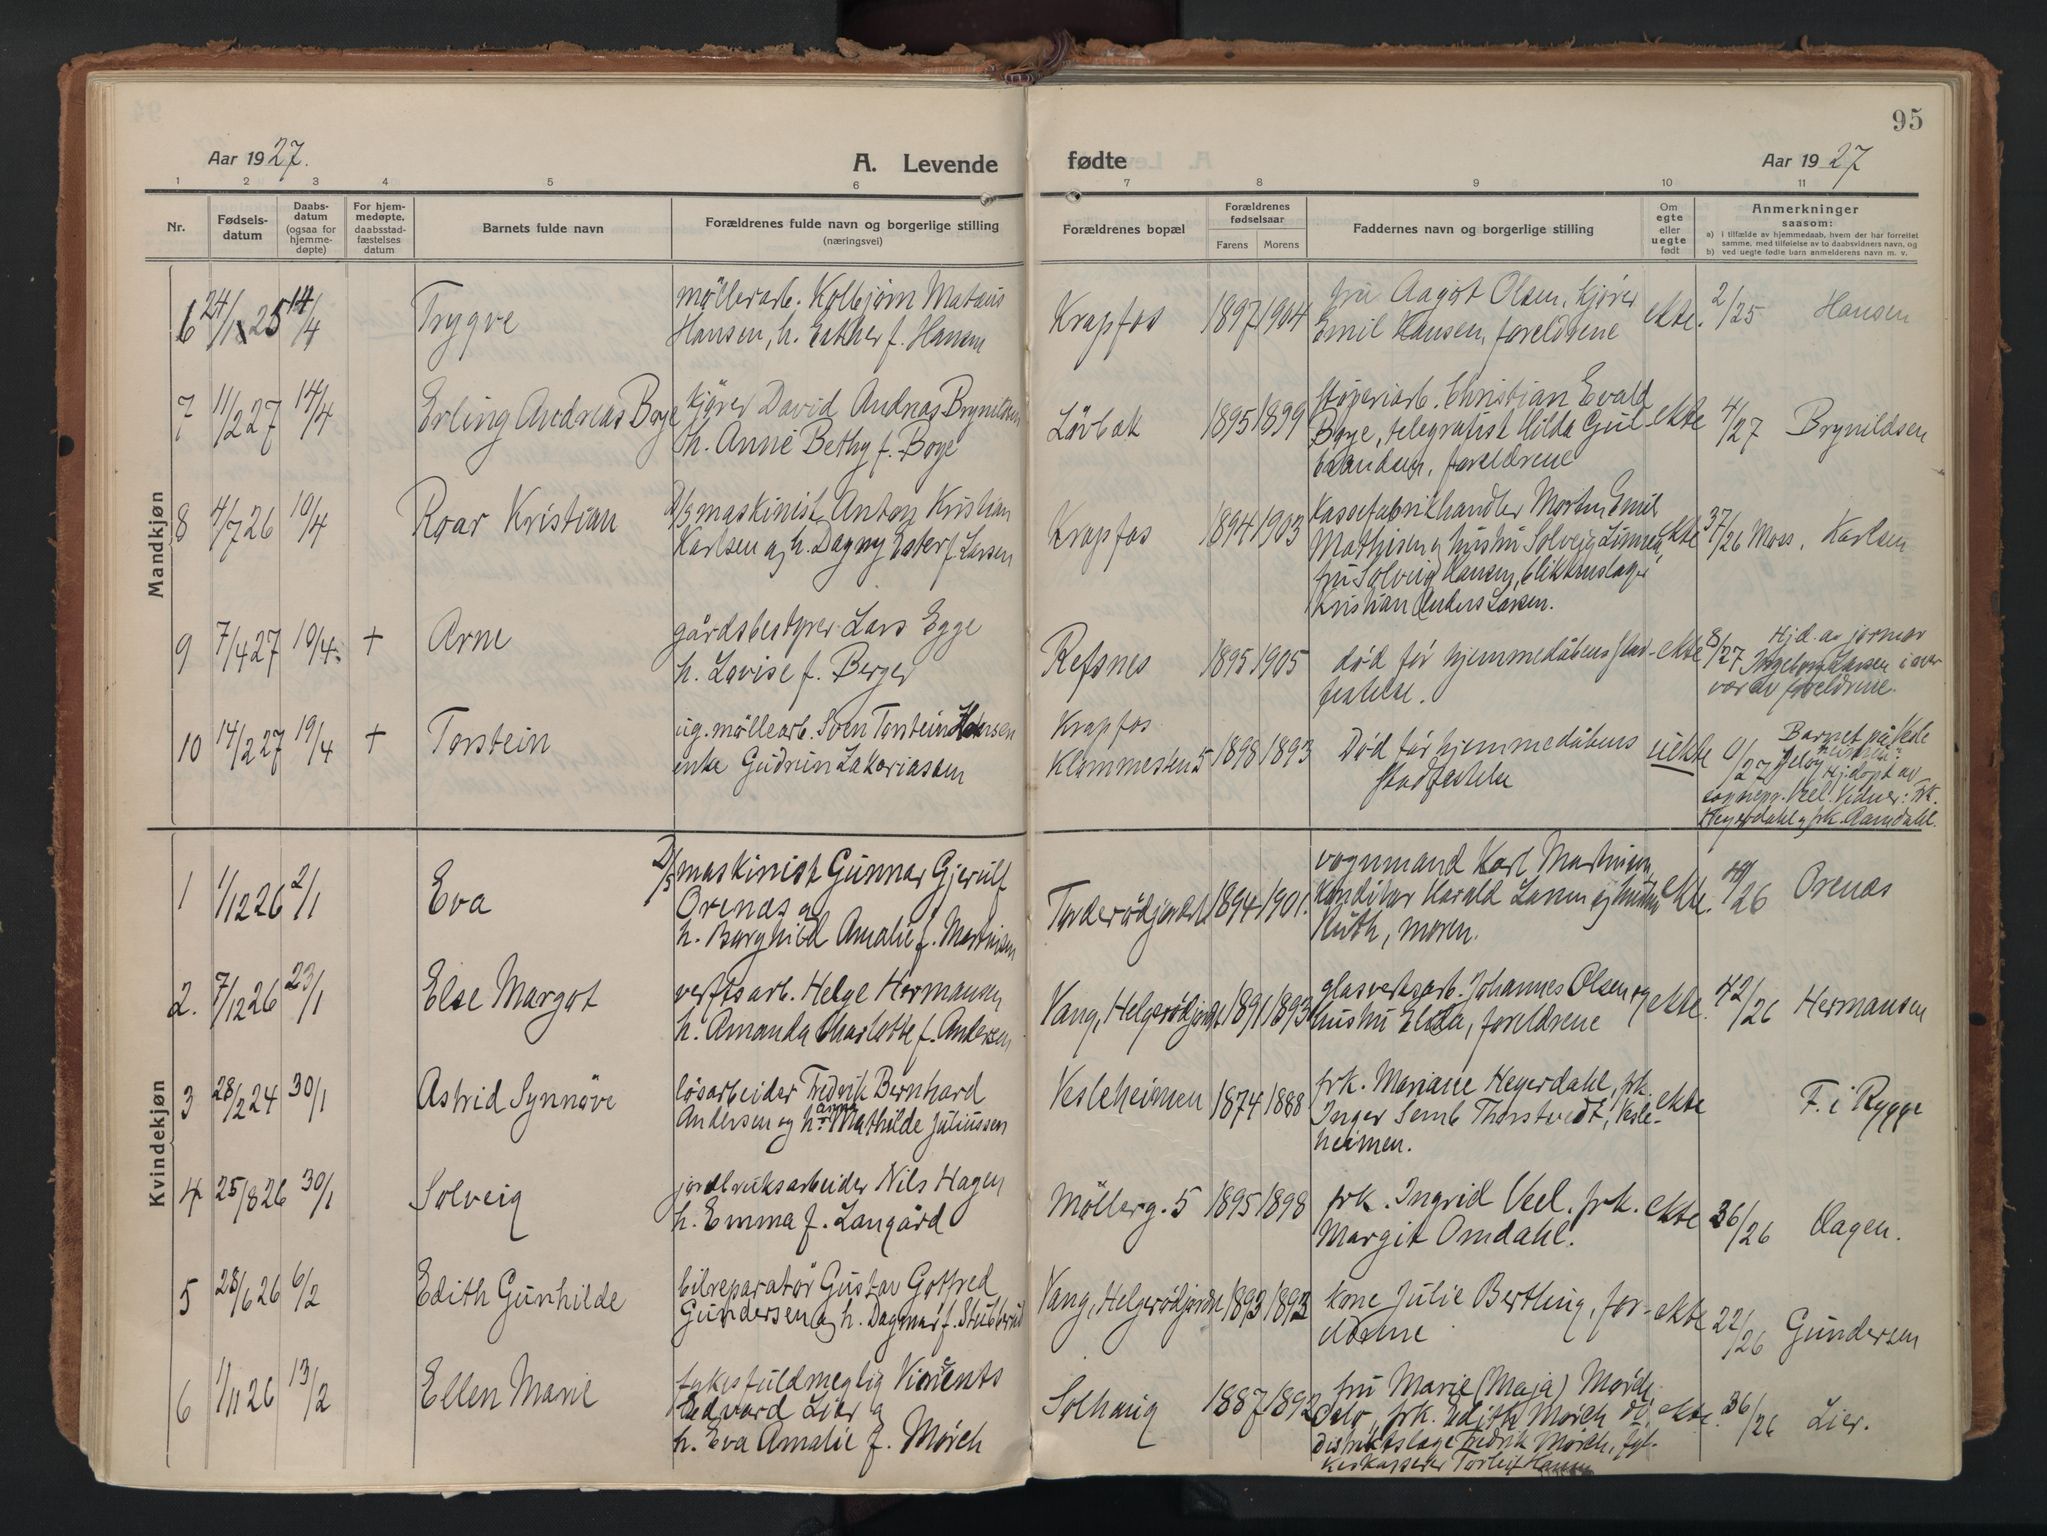 95
Aar 1927.
A. Levende
fødte
Aar 1927
1 2 3 4 5 6 7 8 9 10 11
Nr.
Fødsels-
datum
Daabs-
datum
(ogsaa for
hjemme-
døpte)
For hjem-
medøpte,
daabsstad-
fæstelses
datum
Barnets fulde navn
Forældrenes fulde navn og borgerlige stilling
(næringsvei)
Forældrenes bopæl
Forældrenes
fødselsaar
Farens Morens
Faddernes navn og borgerlige stilling
Om
egte
eller
uegte
født
Anmerkninger
saasom:
a) i tilfælde av hjemmedaab, hvem der har forrettet
samme, med tilføielse av to daabsvidners navn, og
b) ved uegte fødte barn anmelderens navn m. v.
Mandkjøn
6 24/1 25 14/4 Trygve
møllerarb. Kolbjørn Mataus
Hansen, h. Esther f. Hansen
Krapfos 1897 1904
fru Aagot Olsen, kjører
Emil Hansen, foreldrene
ekte. 2/25 Hansen
7 11/2 27 14/4 Erling Andreas Boye
kjører David Andreas Brynildsen
h. Anne Bethy f. Boye
Løvbak 1895 1899
støperiarb. Christian Evald
Boye, telegrafist Hilda Gul
brandsen, foreldrene
ekte 4/27 Brynildsen
8 4/7 26 10/4 Roar Kristian
D/S maskinist Anton Kristian
Karlsen og h. Dagny Ester f. Larsen
Krapfos 1894 1903
Kassefabrikhandler Morten Emil
Mathisen og hustru Solveig Linnea,
fru Solveig Hansen, blikkenslager
Kristian Anders Larsen.
ekte 37/26 Moss. Karlsen
9 7/4 27 10/4. + Arne
gårdsbestyrer Lars Egge
h. Lovise f. Berger
Refsnes 1895 1905
død før hjemmedåbens stad-
festelse.
ekte 8/27 Hjd. av jormor
Ingeborg Larsen i over
vær av foreldrene.
10 14/2 27 19/4 + Torstein
ug. møllearb. Sven Torstein
enke Gudrun Zakariassen
Krapfos
Klommesten 5 1898 1893
Død før hjemmedåbens
stadfestelse
uekte
/27 Barnet på Vesle
Jeløy
Hj.døpt av
sognepr. Veel. Vidner: frk.
Heyerdahl og frk. Aamdahl.
Kvindekjøn
1 1/12 26 2/1 Eva
D/S maskinist Gunnar Gjerulf
Orenas og
h. Borghild Amalie f. Martinsen
1894 1901.
vognmand Karl Martinsen,
Harald Larsen og hustru
Ruth, moren.
ekte. /26 Orenas
2. 7/12 26 23/1 Else Margot
verftsarb. Helge Hermansen
h. Amanda Charlotte f. Andersen
Vang, Helgerødjordet 1891 1893
glasverksarb. Johannes Olsen og
hustru Elida, foreldrene
ekte. 42/26 Hermansen
3 28/2 24 30/1 Astrid Synnøve
løsarbeider Fredrik Bernhard
Andersen og h. Anna Mathilde Juliussen
Vesleheimen 1874 1888
frk. Mariane Heyerdahl, frk.
Inger Semb Thorstvedt, Vesle-
heimen.
ekte F. i Rygge
4 25/8 26 30/1 Solveig
jordbruksarbeider Nils Hagen
h. Emma f. Langård
Møllerg. 5 1895 1898
frk. Ingrid Veel. frk.
Margit Omdahl.
ekte 36/26 Hagen.
5 28/6 26 6/2 Edith Gunhilde
bilreparatør Gustav Gotfred
Gundersen og h. Dagmar f. Stubberud
Vang, Helgerødjordet 1893 1893
kone Julie Bertling, for-
eldrene
ekte 22/26 Gundersen
6 1/11 26 13/2 Ellen Marie
fylkesfuldmegtig Vincents
Edvard Lier og
h. Eva Amalie f. Mørch
Solhaug 1887 1892
fru Marie (Maja) Mørch
Oslo, frk. Edith Mørch
distriktslæge Fredrik Mørch, fyl-
keskasserer Torleif
ekte. 36/26 Lier.